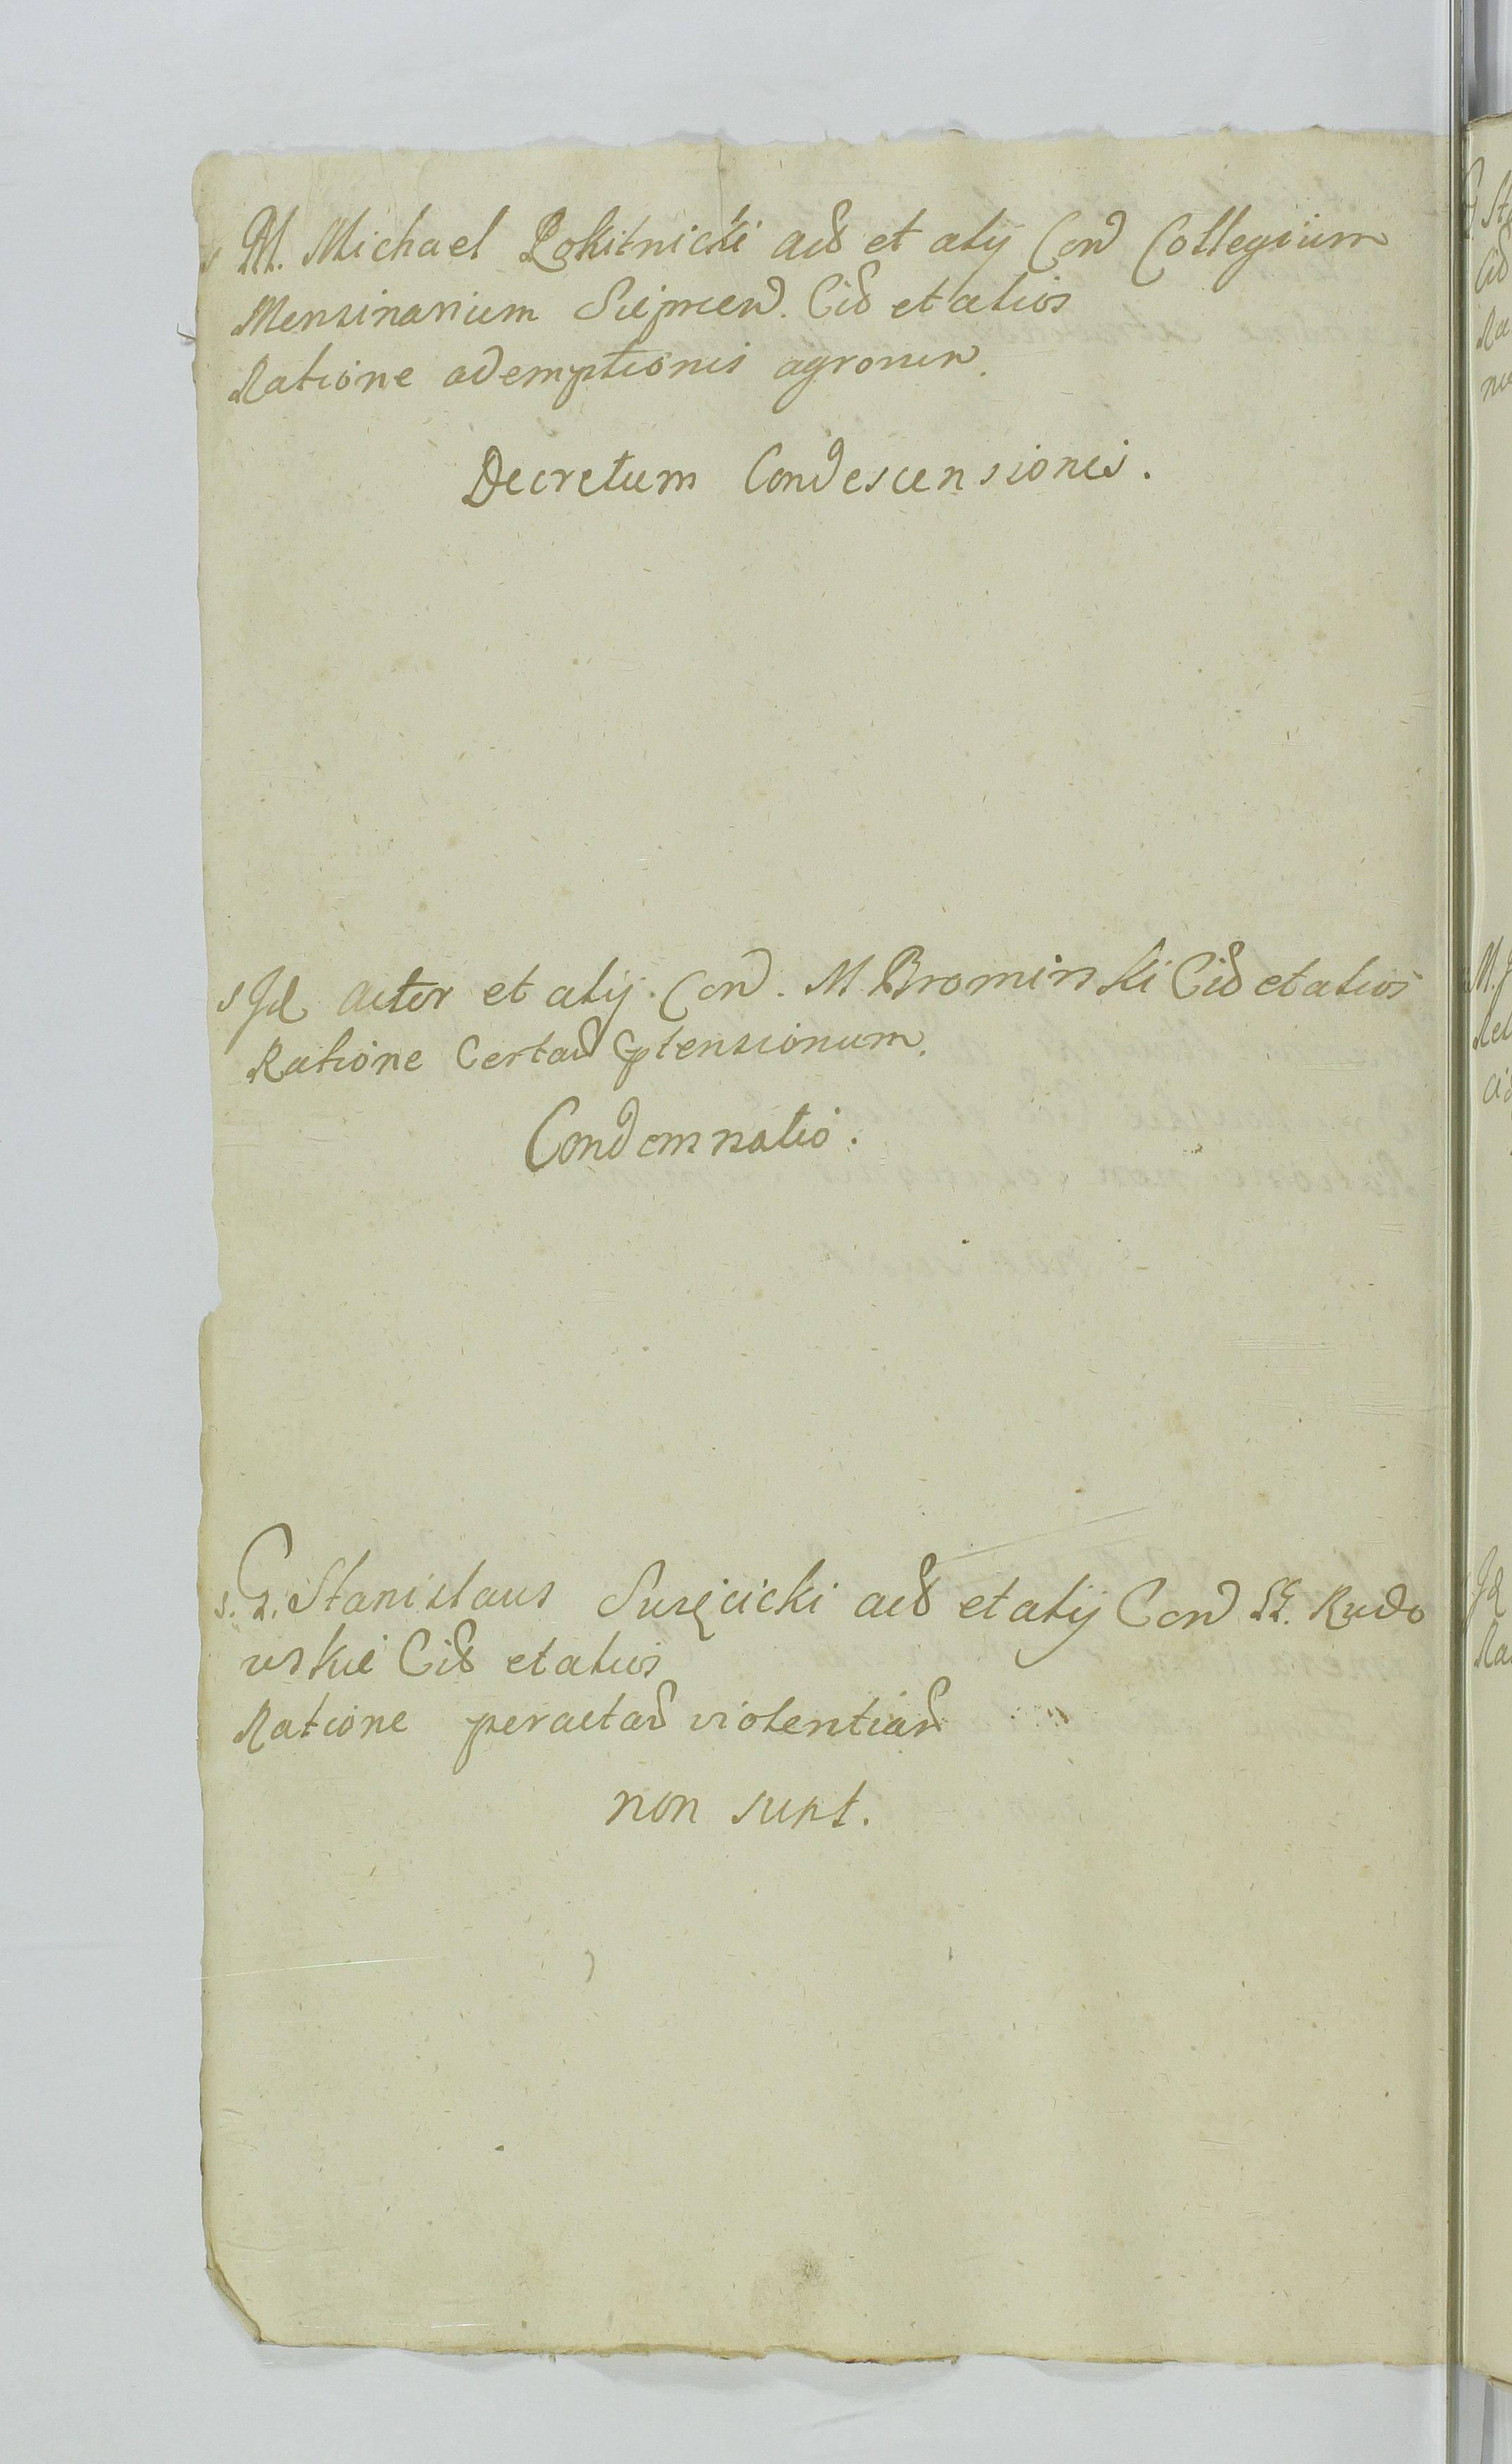 s M. Michael Rokitnicki act et alij Con Collegium
Mensinarium Sieprcen. Cit et alios
Ratione ademptionis agrorum.
Decretum Condescensionis.
s Jd actor et alij. Con. M Brominski Cit et alios
Ratione Certar ptensionum.
Condemnatio.
s. G. Stanislaus Suręcicki act et alij Con Rudo
wskie Cit et alios
Ratione peractar violentiar
non sunt.